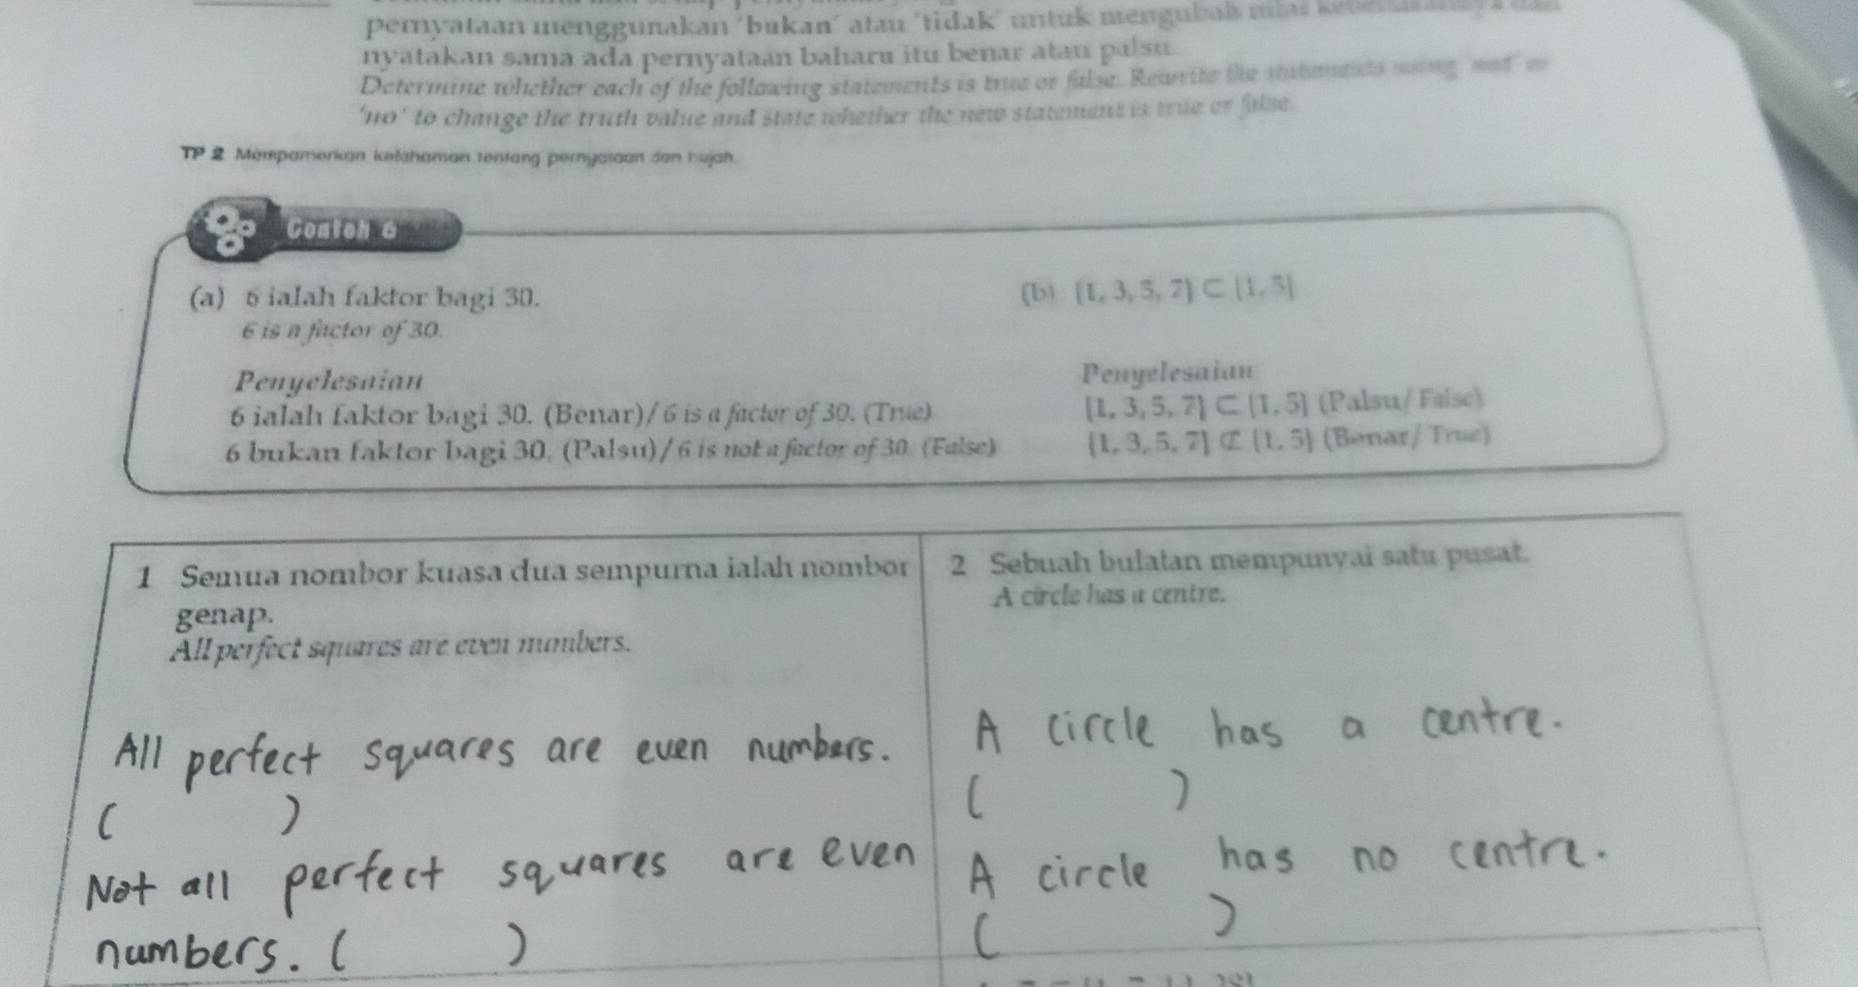 pernyataan menggunakan 'bukan' atau 'tidak' untuk mengubah nilai
nyatakan sama ada pernyataan baharu itu benar atau palsu.
Determine whether each of the following statements is true or false. Rewrite the statements using 'not' or
'no' to change the truth value and state whether the new statement is true or false.
TP 2 Mempamerkan kefahaman tentang pernyataan dan hujah.
Contoh 6
(a) 6 ialah faktor bagi 30.
6 is a factor of 30.
(b) {1, 3, 5, 7} ⊂ {1, 5}
Penyelesaian
6 ialah faktor bagi 30. (Benar)/6 is a factor of 30. (True)
6 bukan faktor bagi 30. (Palsu)/6 is not a factor of 30. (False)
Penyelesaian
{1, 3, 5, 7} ⊂ {1, 5} (Palsu/False)
{1, 3, 5, 7} ⊄ {1, 5} (Benar/True)
1 Semua nombor kuasa dua sempurna ialah nombor
genap.
All perfect squares are even numbers.
All perfect squares are even numbers.
( )
Not all perfect squares are even
numbers. ( )
2 Sebuah bulatan mempunyai satu pusat.
A circle has a centre.
A circle has a centre.
( )
A circle has no centre.
( )